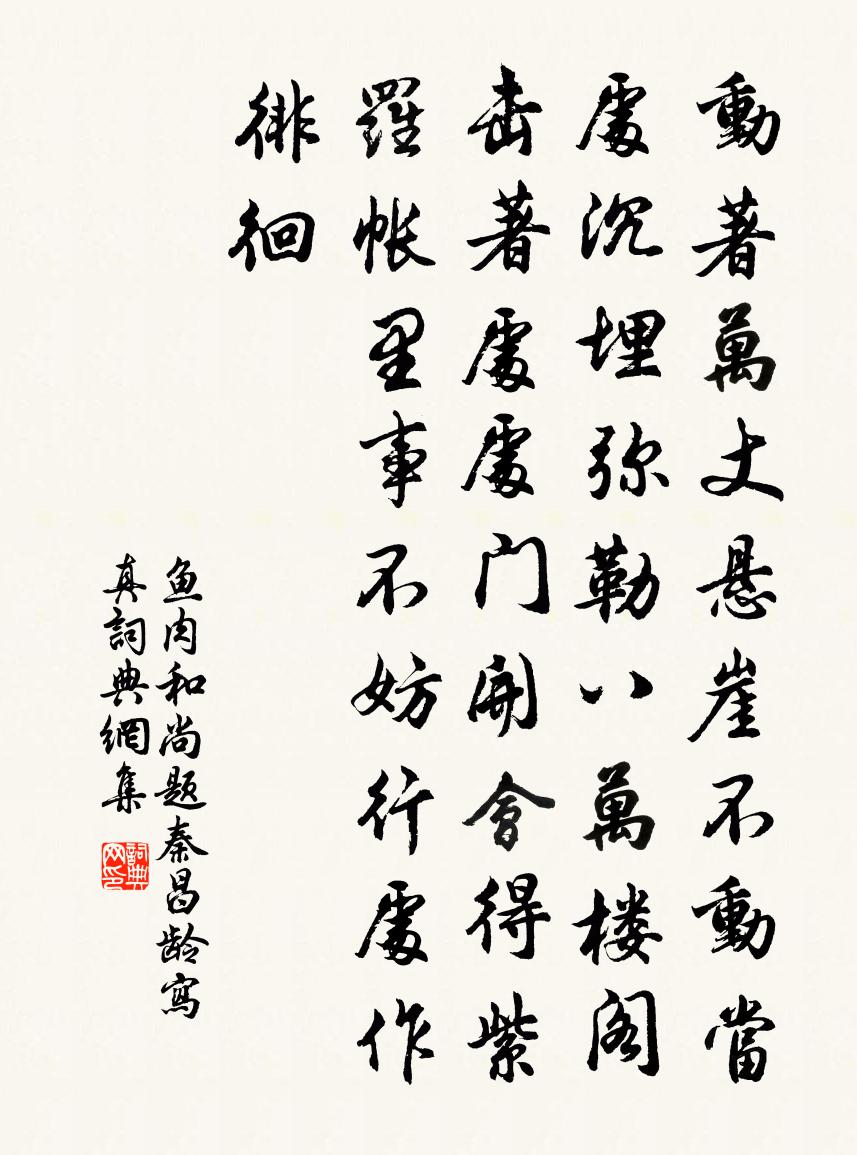 動著萬丈悬崖不動當
處沉埋弥勒八萬楼阁
击著處處门開會得紫
羅帐里事不妨行處作
徘徊
鱼肉和尚题秦昌龄寫
真詞典網集
詞典网印